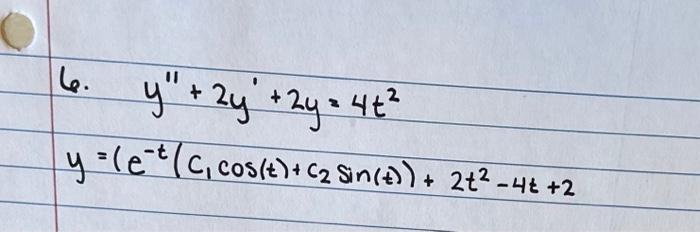 6. y'' + 2y' + 2y = 4t²
y = (e^-t (C₁ cos(t) + C₂ sin(t)) + 2t² - 4t + 2